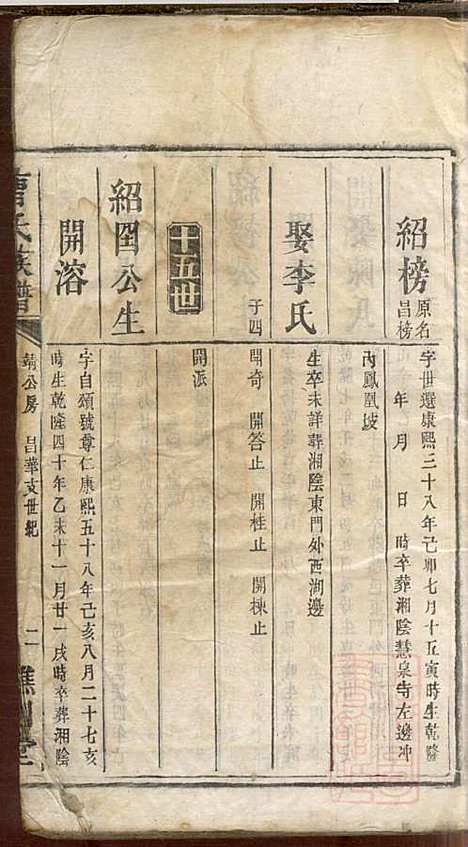 紹榜 原名昌榜
字世選康熙三十八年己卯七月十五寅時生乾隆
年 月 日 時卒葬湘陰慧泉寺左邊冲
內鳳凰坡
娶李氏
生卒未詳葬湘陰東門外西湖邊
子四
開奇 開答止 開桂止 開棟止
十五世
開派
紹閏公生
開溶
字自頌號尊仁康熙五十八年己亥八月二十七亥
時生乾隆四十年乙未十一月廿一戌時卒葬湘陰
曹氏族譜
靖公房 昌華支世紀
二
堂